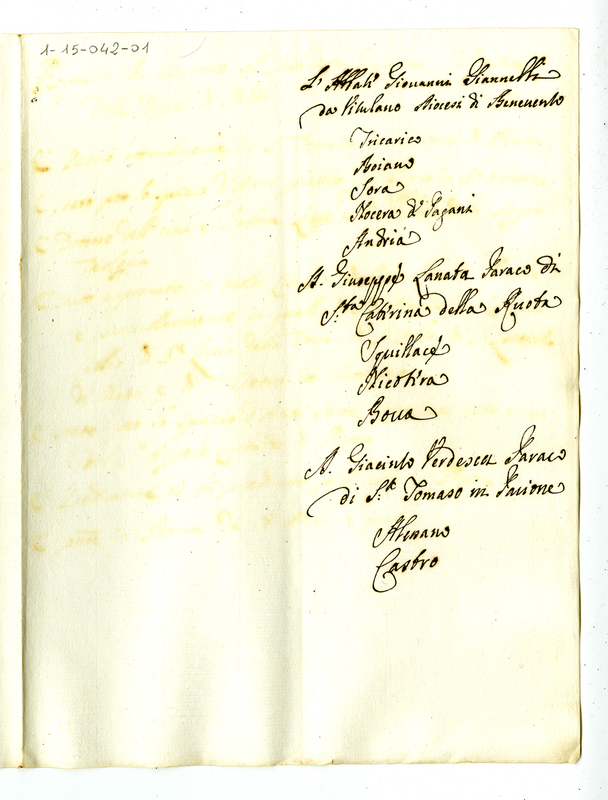 1-15-042-01
L'Abbate Giovanni Giannelli
da Vitulano Diocesi di Benevento
Tricarico
Boiano
Sora
Nocera de Pagani
Andria
A. Giuseppe Lanata Paroco di
S.ta Catirina della Ruota
Squillace
Nicotira
Boua
A. Giacinto Verdesca Paroco
di S.to Tomaso in Parione
Alesano
Castro